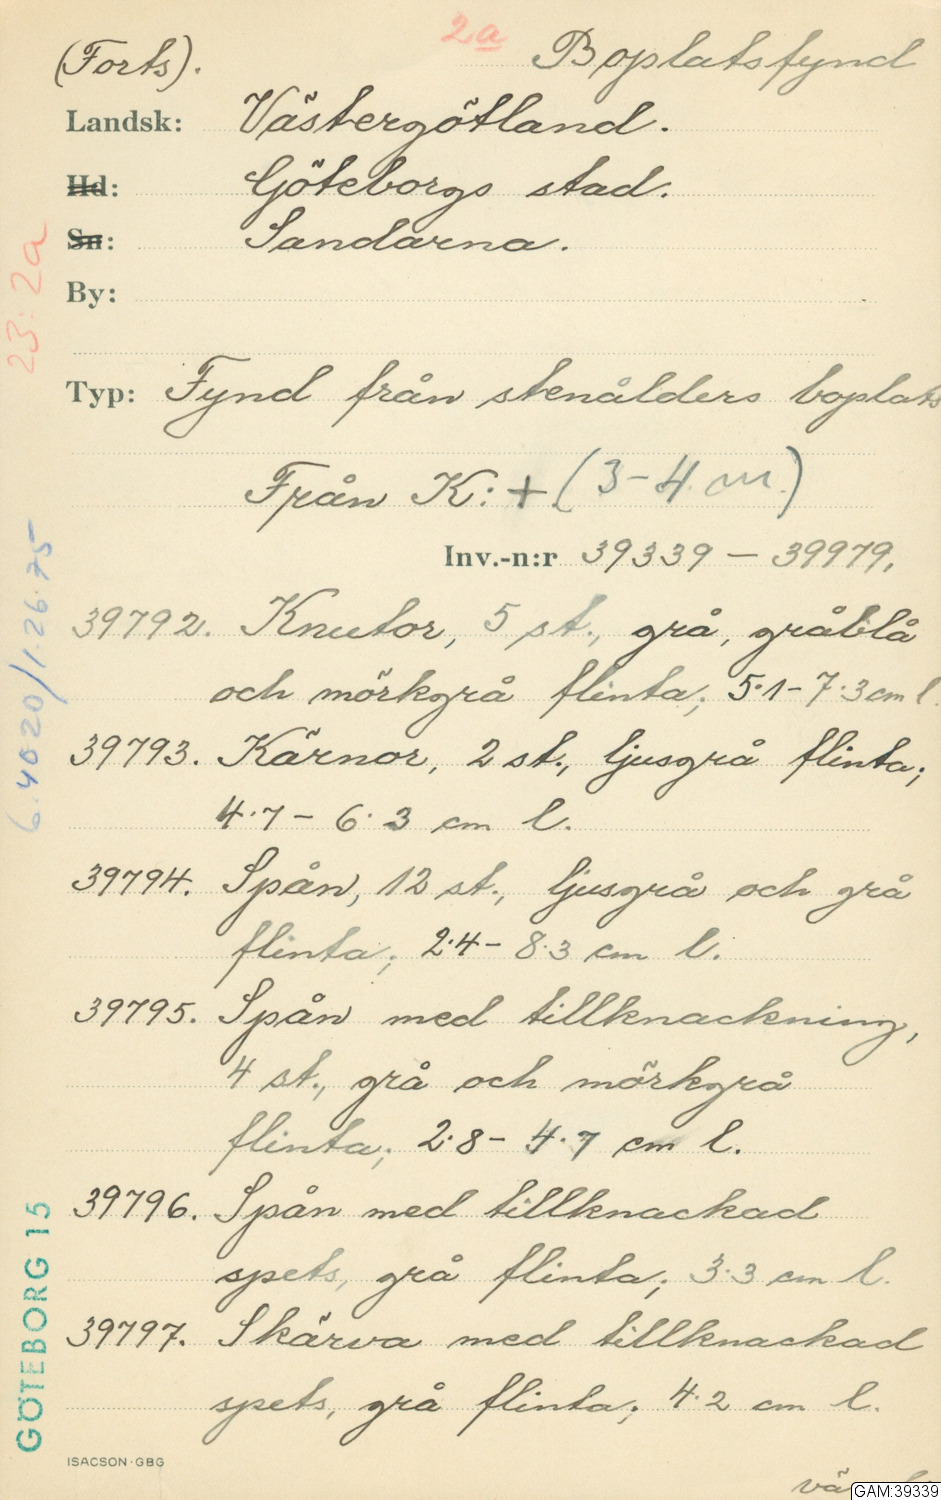 2a
Boplatsfynd
(Forts).
Landsk: Västergötland.
Hd: Göteborgs stad.
Sn: Sandarna.
By:
Typ: Fynd från stenålders boplats
Från K: + (3-4 m.)
Inv.-n:r 39339 — 39979.
39792. Knutor, 5 st., grå, gråblå
och mörkgrå flinta; 5.1-7.3 cm l.
39793. Kärnor, 2 st., ljusgrå flinta;
4.7 - 6.3 cm l.
39794. Spån, 12 st., ljusgrå och grå
flinta; 2.4- 8.3 cm l.
39795. Spån med tillknackning,
4 st., grå och mörkgrå
flinta; 2.8- 4.7 cm l.
39796. Spån med tillknackad
spets, grå flinta; 3.3 cm l.
39797. Skärva med tillknackad
spets, grå flinta; 4.2 cm l.
ISACSON·GBG
GAM:39339
23:2a
6.4020/1.26.75
GÖTEBORG 15